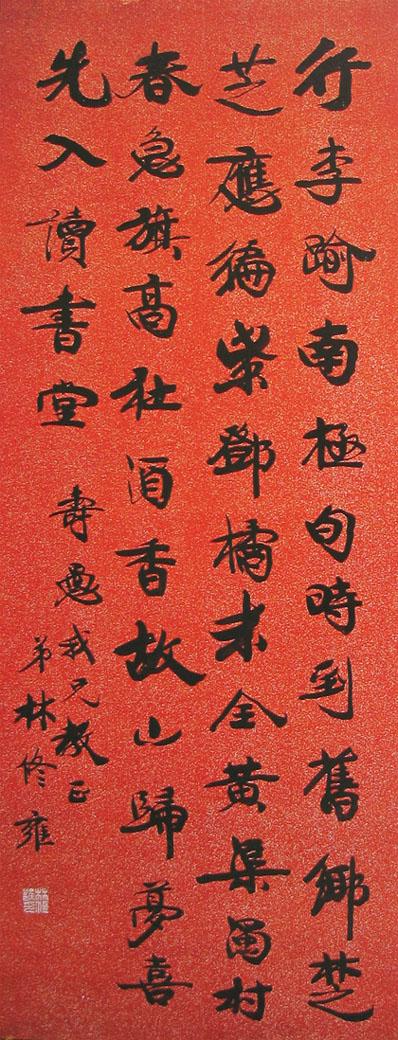 行李踰南極旬時到舊鄉楚
芝應徧紫鄧橘未全黃渠濁村
春急旗高社酒香故山歸夢喜
先入讀書堂
壽我兄教正
弟林修雍